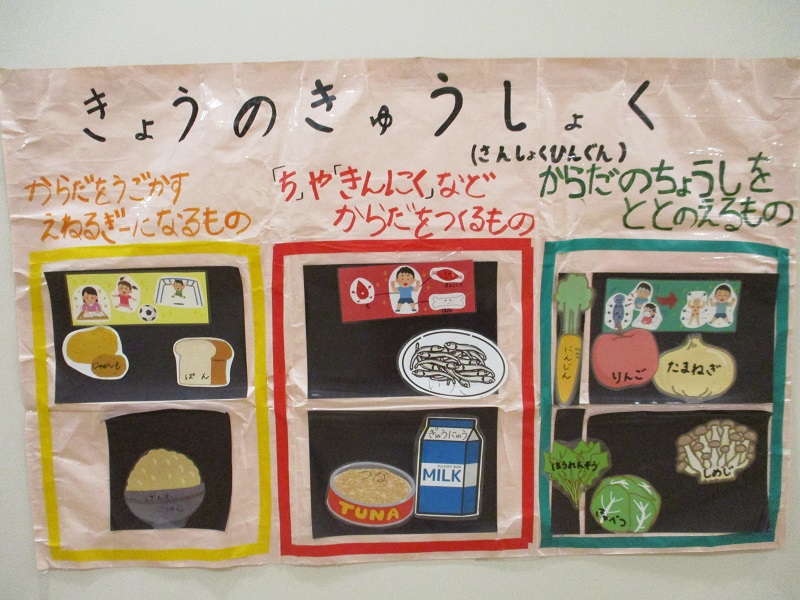 きょうのきゅうしょく
(さんしょくひんぐん)
からだをうごかす
えねるぎーになるもの
「ち」や「きんにく」など
からだをつくるもの
からだのちょうしを
ととのえるもの
じゃがいも
ぱん
ごはん
ぎゅうにゅう
MILK
つな
TUNA
にんじん
りんご
たまねぎ
ほうれんそう
きゃべつ
しめじ